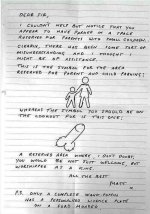 DEAR SIR,
I COULDN'T HELP BUT NOTICE THAT YOU
APPEAR TO HAVE PARKED IN A SPACE
RESERVED FOR PARENTS WITH YOUNG CHILDREN.
CLEARLY, THERE HAS BEEN SOME SORT OF
MISUNDERSTANDING AND I THOUGHT I
MIGHT BE OF ASSISTANCE.
THIS IS THE SYMBOL FOR THE AREA
RESERVED FOR PARENT AND CHILD PARKING:
WHEREAS THE SYMBOL YOU SHOULD BE ON
THE LOOKOUT FOR IS THIS ONE:
A RESERVED AREA WHERE I DON'T DOUBT,
YOU WOULD BE NOT JUST WELCOME BUT
WORSHIPPED AS A KING.
ALL THE BEST
MATT
X
P.S. ONLY A COMPLETE
HAS A PERSONALISED LICENCE PLATE
ON A FORD MONDEO